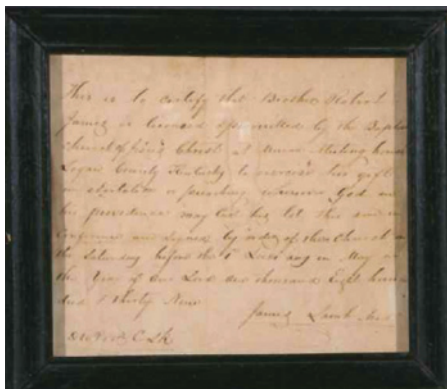 This is to certify that Brother Robert
James is licensed & permitted by the Baptist
church of Jesus Christ at Union Meeting house
Logan County Kentucky to exercise his gift
in exhortation or preaching wherever God in
his providence may cast his lot this done in
Conference and signed by order of the Church on
the Saturday before the 1st Lords day in May in
the Year of our Lord one thousand Eight hun
dred & thirty Nine
James Lamb